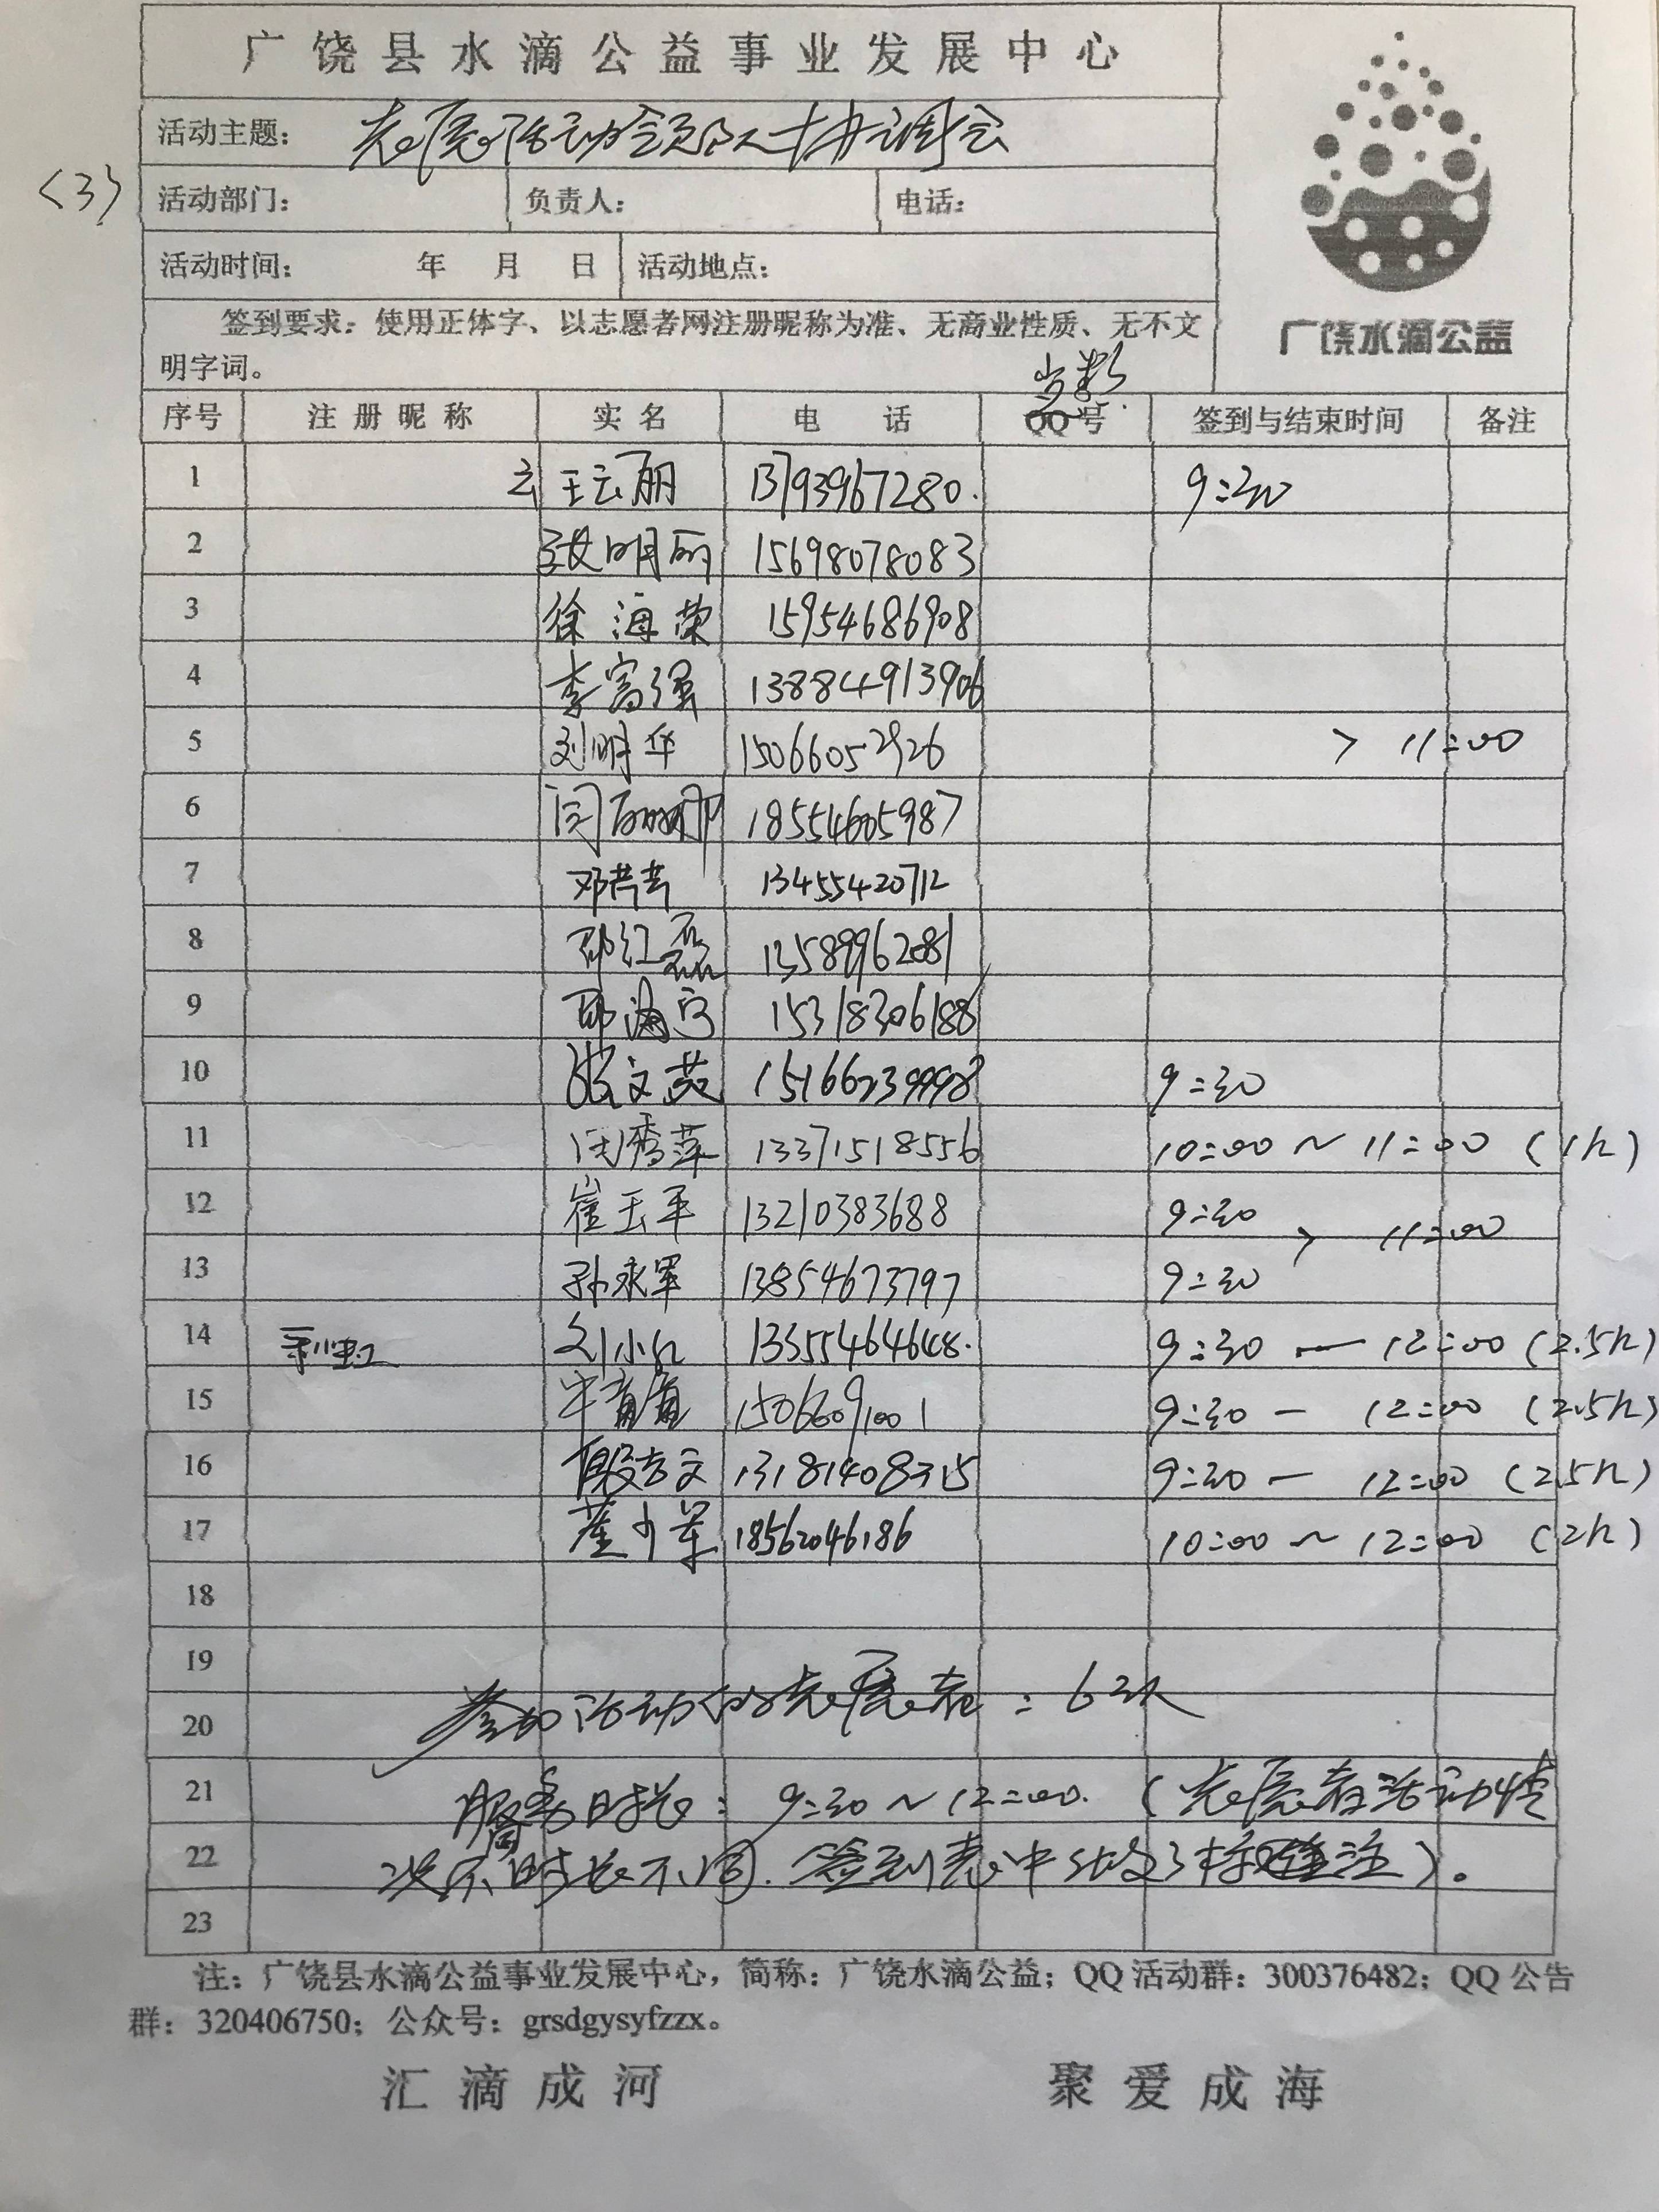 广饶县水滴公益事业发展中心
活动主题: 志愿活动领队协调会
<3>
活动部门: 负责人: 电话:
活动时间: 年 月 日 活动地点:
广饶水滴公益
签到要求: 使用正体字、以志愿者网注册昵称为准、无商业性质、无不文
明字词。
序号 注册昵称 实名 电 话 QQ号 签到与结束时间 备注
1 云 王云丽 13793967280. 9:30
2 张明丽 15698078083
3 徐海荣 15954686908
4 李富强 13884913906
5 刘明华 15066052926 > 11:00
6 闫丽娜 18554605987
7 邓芹芹 13455420712
8 邵红磊 13589962081
9 邵海宁 15318306188
10 张文英 15166239998 9:30
11 闫秀萍 13371518556 10:00 ~ 11:00 (1h)
12 崔玉平 13210383688 9:30 > 11:00
13 孙永军 13854673797 9:30
14 刘小红 13355464648. 9:30 — 12:00 (2.5h)
15 牛 15066091001 9:30 — 12:00 (2.5h)
16 殷志文 13181408315 9:30 — 12:00 (2.5h)
17 董少军 18562046186 10:00 ~ 12:00 (2h)
18
19
参加活动的志愿者: 6 队
20
21 服务时长: 9:30 ~ 12:00. (志愿者活动情
22 况不同时长不同. 签到表中做了标注)。
23
注: 广饶县水滴公益事业发展中心, 简称: 广饶水滴公益; QQ 活动群: 300376482; QQ 公告
群: 320406750; 公众号: grsdgysyfzzx。
汇滴成河 聚爱成海